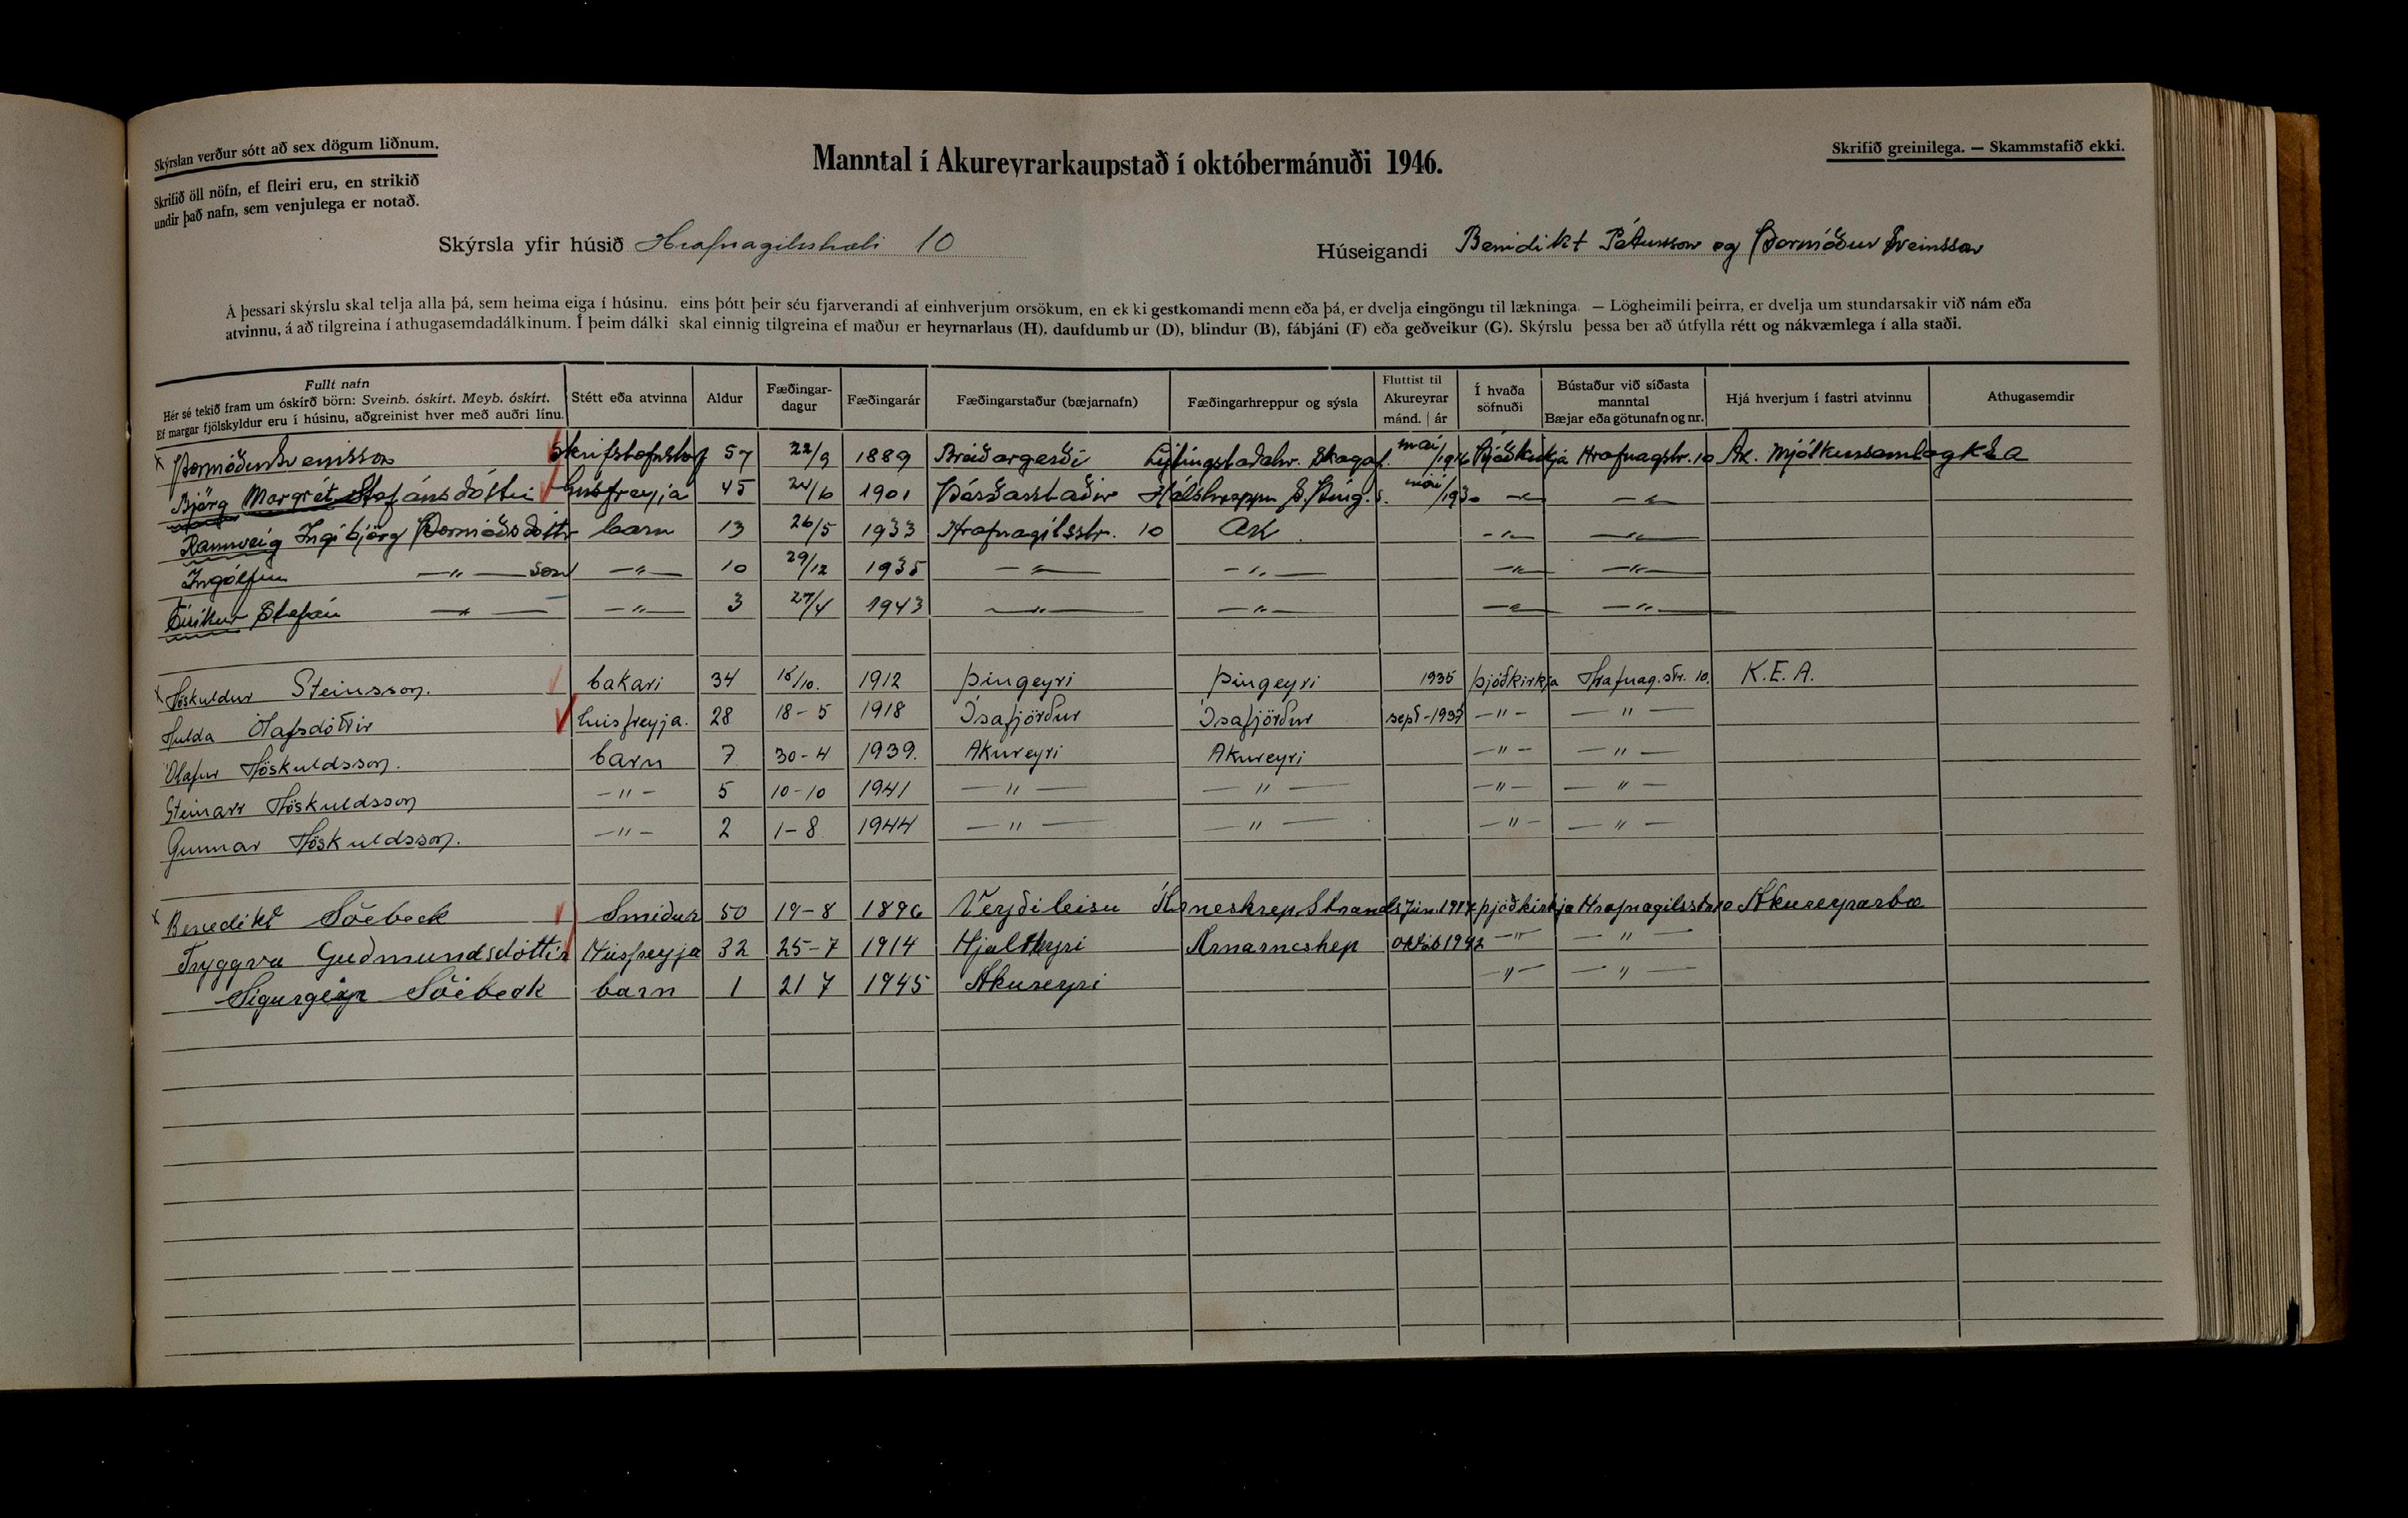 Skýrslan verður sótt að sex dögum liðnum.
Skrifið öll nöfn, ef fleiri eru, en strikið
undir það nafn, sem venjulega er notað.
Manntal í Akureyrarkaupstað í októbermánuði 1946.
Skrifið greinilega. — Skammstafið ekki.
Skýrsla yfir húsið Hrafnagilsstræti 10
Húseigandi Benidikt Pétursson og Þormóður Sveinsson
Á þessari skýrslu skal telja alla þá, sem heima eiga í húsinu, eins þótt þeir séu fjarverandi af einhverjum orsökum, en ekki gestkomandi menn eða þá, er dvelja eingöngu til lækninga. — Lögheimili þeirra, er dvelja um stundarsakir við nám eða
atvinnu, á að tilgreina í athugasemdadálkinum. Í þeim dálki skal einnig tilgreina ef maður er heyrnarlaus (H), daufdumbur (D), blindur (B), fábjáni (F) eða geðveikur (G). Skýrslu þessa ber að útfylla rétt og nákvæmlega í alla staði.
Fullt nafn Hér sé tekið fram um óskírð börn: Sveinb. óskírt. Meyb. óskírt. Ef margar fjölskyldur eru í húsinu, aðgreinist hver með auðri línu. Stétt eða atvinna Aldur Fæðingar-dagur Fæðingarár Fæðingarstaður (bæjarnafn) Fæðingarhreppur og sýsla Fluttist til Akureyrar mánd. | ár Í hvaða söfnuði Bústaður við síðasta manntal Bæjar eða götunafn og nr. Hjá hverjum í fastri atvinnu Athugasemdir
x Þormóður Sveinsson Skrifstofustarf 57 22/9 1889 Breiðargerði Lýtingstaðahr. Skagaf. maí Þjóðkirkja Hrafnagstr. 10 Ak. Mjólkursamlag KEA
Björg Margrét Stefánsdóttir húsfreyja 45 1901 Þórðarstaðir Hálshreppur S. Þing.s. maí/1930 —"— —"—
Rannveig Ingibjörg Þormóðsdóttir barn 13 26/5 1933 Hrafnagilsstr. 10 Ak —"— —"—
Ingólfur —"— son —"— 10 29/12 1935 —"— —"— —"— —"—
Eiríkur Stefán —"— —"— 3 27/4 1943 —"— —"— —"— —"—
x Höskuldur Steinsson. bakari 34 15/10. 1912 Þingeyri Þingeyri 1935 Þjóðkirkja Hrafnag.str. 10. K.E.A.
Hulda Ólafsdóttir húsfreyja. 28 18-5 1918 Ísafjörður Ísafjörður sept-1937 —"— —"—
Ólafur Höskuldsson. barn 7 30-4 1939. Akureyri Akureyri —"— —"—
Steinarr Höskuldsson —"— 5 10-10 1941 —"— —"— —"— —"—
Gunnar Höskuldsson. —"— 2 1-8 1944 —"— —"— —"— —"—
x Benedikt Söebeck Smiður 50 19-8 1896 Veyðileisu Árneshrep Strands þjóðkirkja Hrafnagilsstr 10 Akureyrarbæ
Tryggva Guðmundsdóttir Húsfreyja 32 25-7 1914 Hjalteyri Arnarneshep 1942 —"— —"—
Sigurgeir Söebeck barn 1 21 7 1945 Akureyri —"— —"—